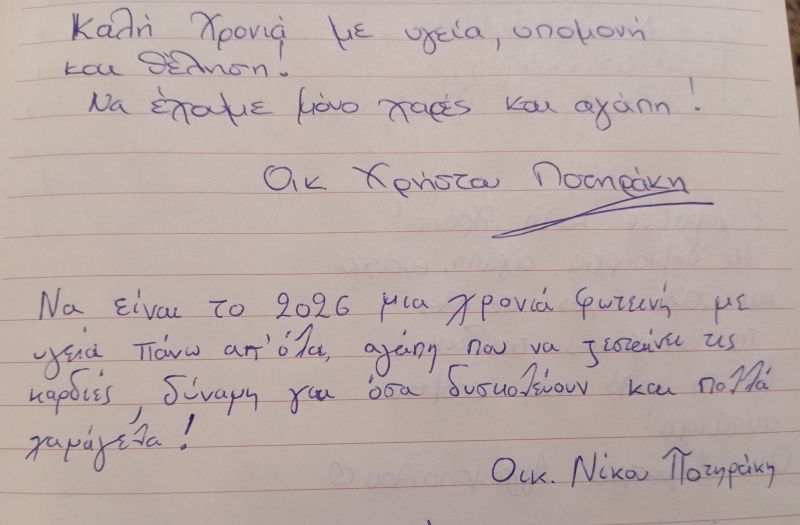 Καλή Χρονιά με υγεία, υπομονή
και θέληση!
Να έχουμε μόνο χαρές και αγάπη!
Οικ Χρήστου Ποτηράκη
Να είναι το 2026 μια χρονιά φωτεινή με
υγειά πάνω απ' όλα, αγάπη που να ζεσταίνει τις
καρδιές, δύναμη για όσα δυσκολεύουν και πολλά
χαμόγελα!
Οικ. Νίκου Ποτηράκη